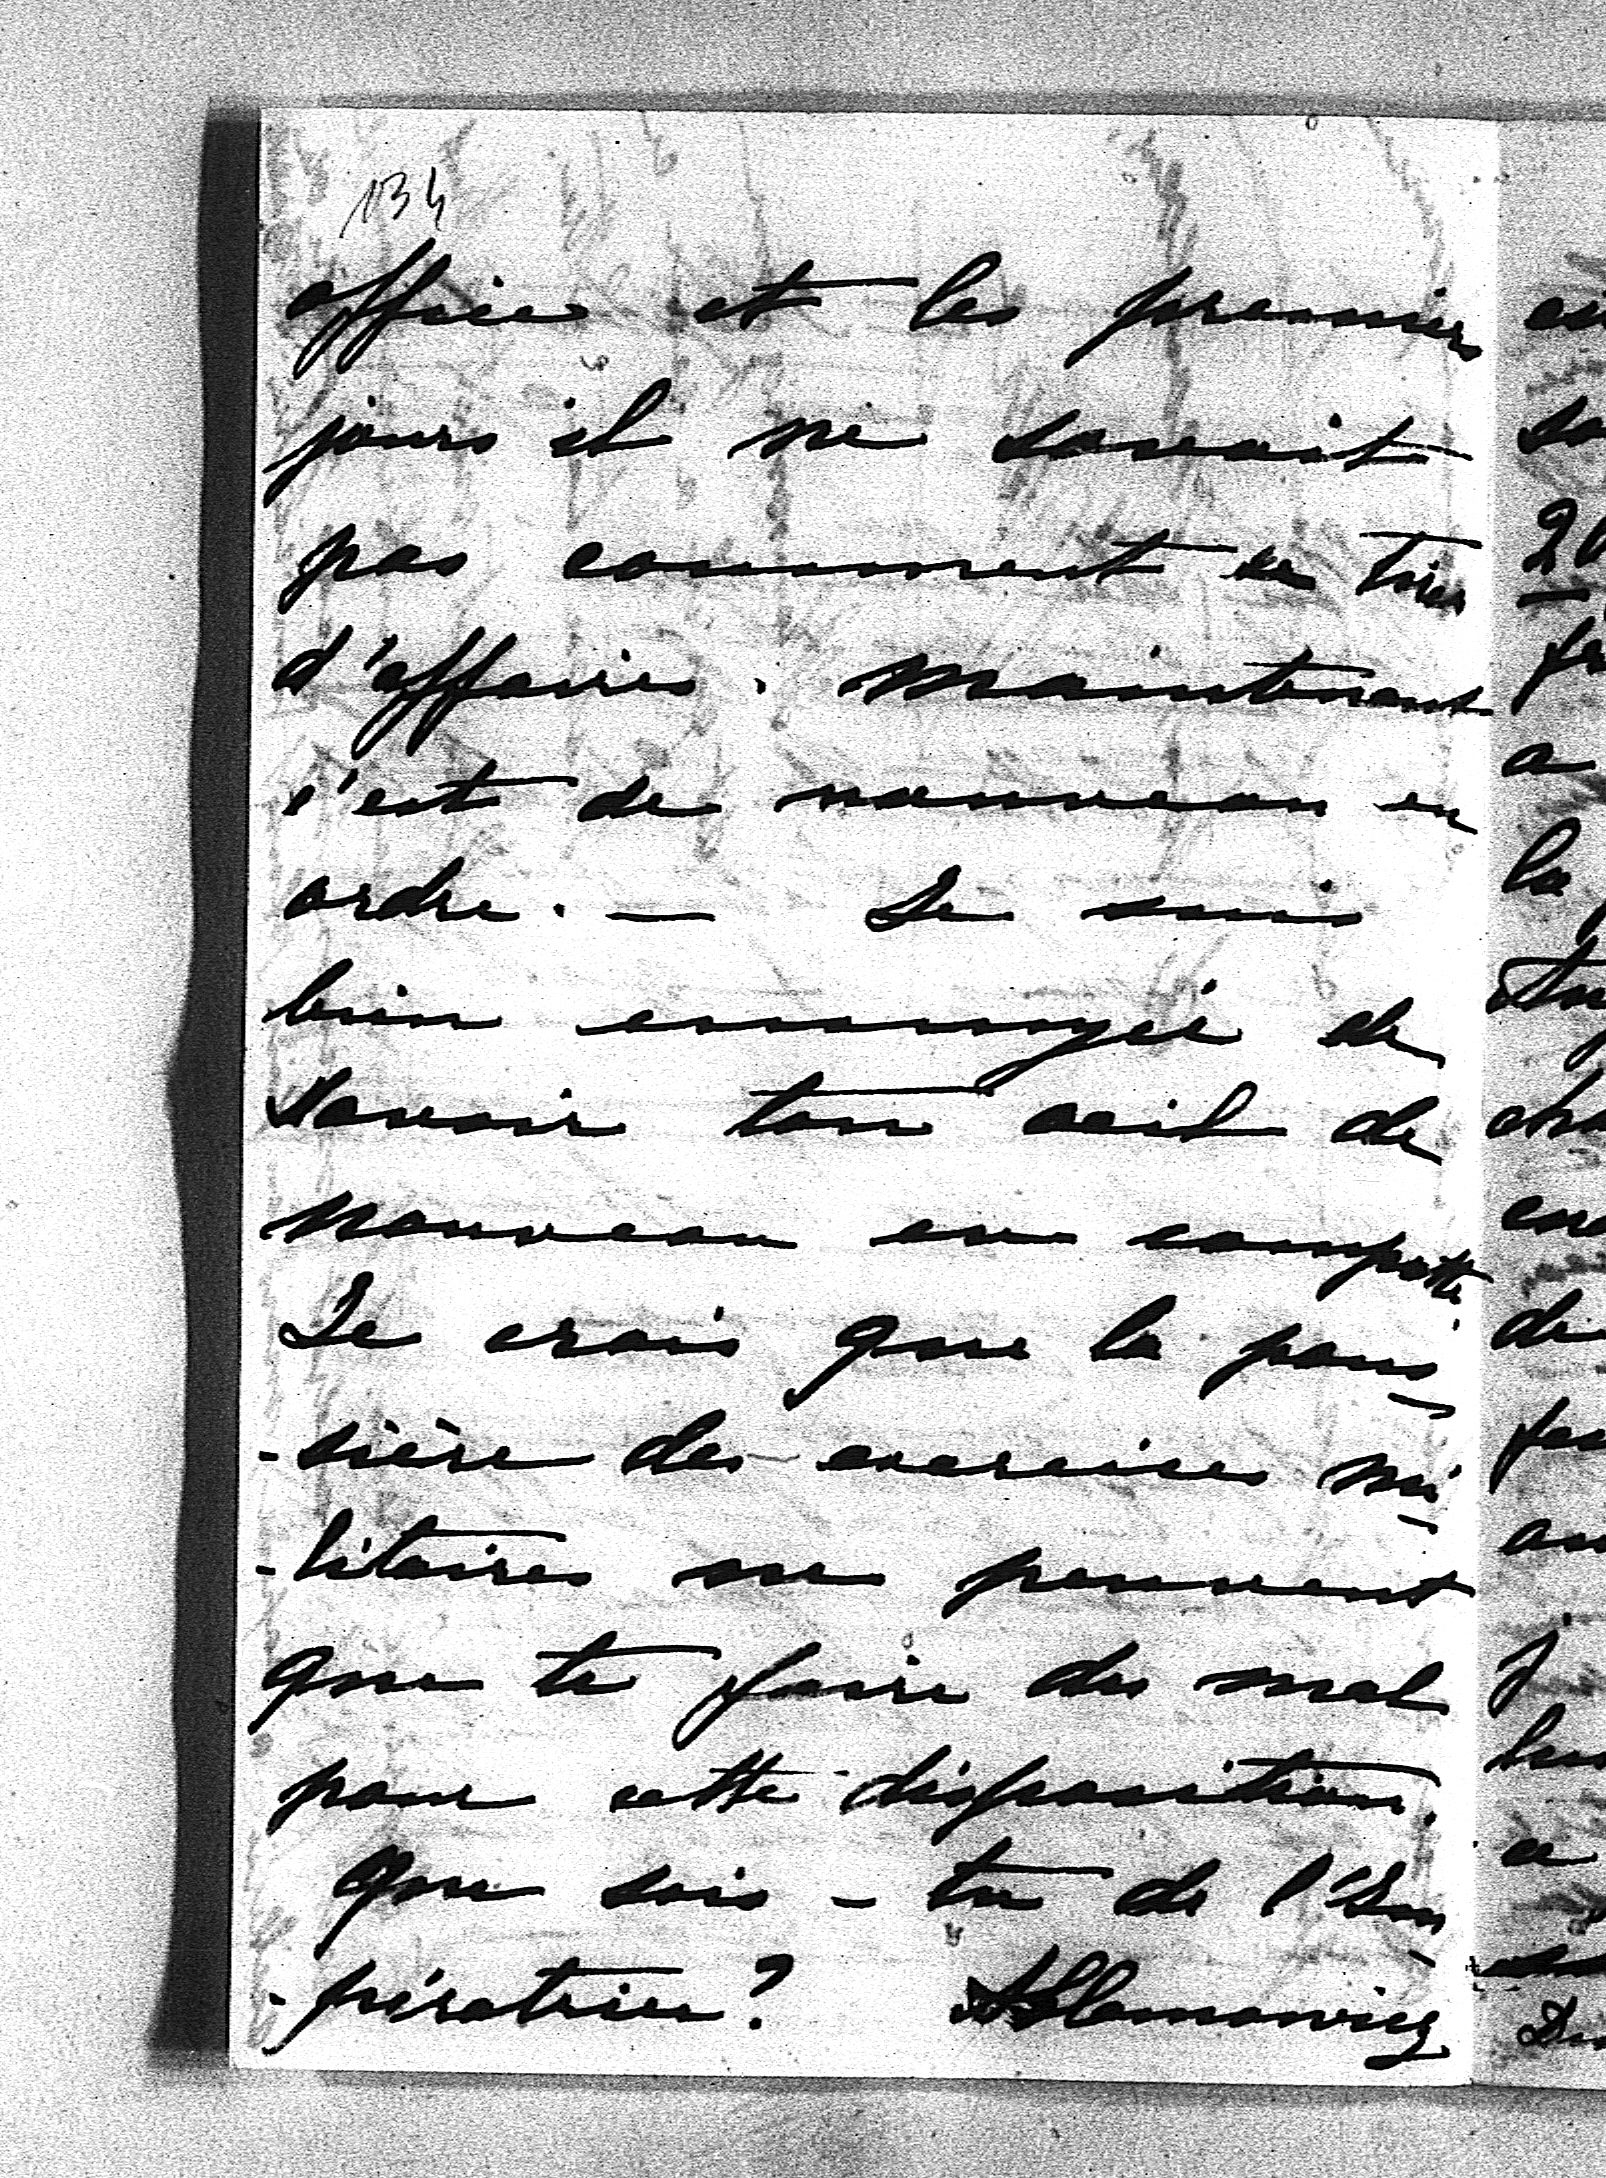 134
office et les premiers
jours il ne savait
pas comment se tirer
d'affaires. Maintenant
c'est de nouveau en
ordre. — Je suis
bien ennuyée de
savoir ton oeil de
nouveau en compotte
Je crois que la pous
-sière des exercices mi
-litaires ne peuvent
que te faire du mal
pour cette disposition.
Que sais-tu de l'Im
-pératrice?